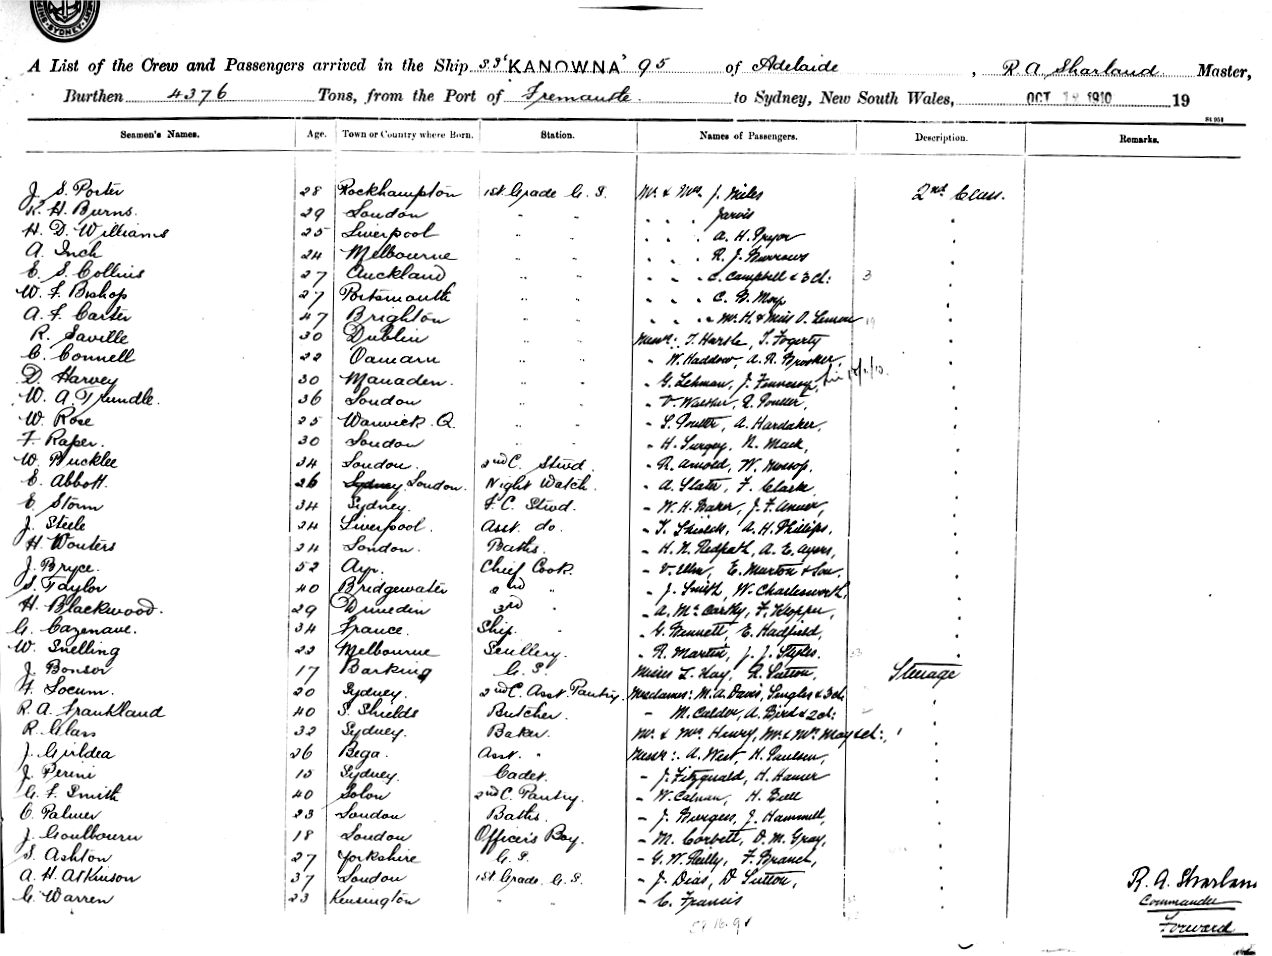 SYDNEY
A List of the Crew and Passengers arrived in the Ship S.S. 'KANOWNA' 95 of Adelaide, R. A. Sharland Master,
Burthen 4376 Tons, from the Port of Fremantle to Sydney, New South Wales, OCT 1910 19
St 953
Seamen's Names. Age. Town or Country where Born. Station. Names of Passengers. Description. Remarks.
J. S. Porter 28 Rockhampton 1st Grade G. S. Mr & Mrs J. Miles 2nd Class.
R. H. Burns. 29 London " " " " " Jarvis "
H. D. Williams 25 Liverpool " " " " " A. H. Pryor "
A. Inch 24 Melbourne " " " " " R. J. Burrows "
E. S. Collins 27 Auckland " " " " " C. Campbell & 3 ch: 3 "
W. F. Bishop 27 Portsmouth " " " " " C. "
A. F. Carter 47 Brighton " " " " " H. & Miss O. 19 "
R. Saville 30 Dublin " " Messrs: T. , T. Fogerty "
C. Connell 22 Oamaru " " " W. Haddow, A. R. Brooker, "
D. Harvey 30 Manaden. " " " G. Lehman, J. Fennessy, "
W. A. Trundle. 36 London " " " V. Walker, R. Poulter, "
W. Rose 25 Warwick. Q. " " " S. Poulter, A. Hardaker, "
F. Raper. 30 London " " " H. , N. Mack, "
W. Bucklee 34 London. 2nd C. Stwd. " R. Arnold, W. "
E. Abbott. 26 Sydney London. Night Watch. " A. Slater, F. Clark "
E. Storm 34 Sydney. F. C. Stwd. " W. H. Baker, J. F. "
J. Steele 24 Liverpool. Asst. do. " T. , A. H. Phillips, "
H. Wouters 24 London. Baths. " H. N. Redpath, A. E. Ayers, "
J. Bryce. 52 Ayr. Chief Cook. " V. , E. Marton & Son, "
S. Taylor 40 Bridgewater 2nd " " J. Smith, W. Charlesworth, "
H. Blackwood. 29 Dunedin 3rd " " A. McCarthy, F. Klopper, "
G. Cazenave. 34 France. Ship. " " G. Bennett, E. Hadfield, "
W. Snelling 23 Melbourne Scullery. " R. Martin, J. J. Styles. "
J. Bonsor 17 Barking G. S. Misses L. Hay, R. Sutton, Steerage
F. Socum. 20 Sydney. 2nd C. Asst. Pantry. Mesdames: M. A. Davis, & 3 ch "
R. A. Frankland 40 S. Shields Butcher. " M. Calder, A. Bird & 2 ch: "
R. Glass 32 Sydney. Baker. Mr & Mrs Henry, Mr & Mrs May & ch:, 1 "
J. Gildea 26 Bega. Asst. " Messrs: A. West, H. Paulsen, "
J. Perini 15 Sydney. Cadet. " J. Fitzgerald, H. Hamer "
G. F. Smith 40 Solon 2nd C. Pantry. " W. Calnan, H. Bell "
C. Palmer 23 London Baths. " J. Burgess, J. Hammill, "
J. Goulbourn 18 London Officer's Boy. " M. Corbett, D. M. Gray, "
S. Ashton 27 Yorkshire G. S. " G. W. Reilly, F. Branch, "
A. H. Atkinson 37 London 1st Grade G. S. " J. Dias, D. Sutton, "
G. Warren 23 Kensington " " " C. Francis "
R. A. Sharlan
Commander
Forward